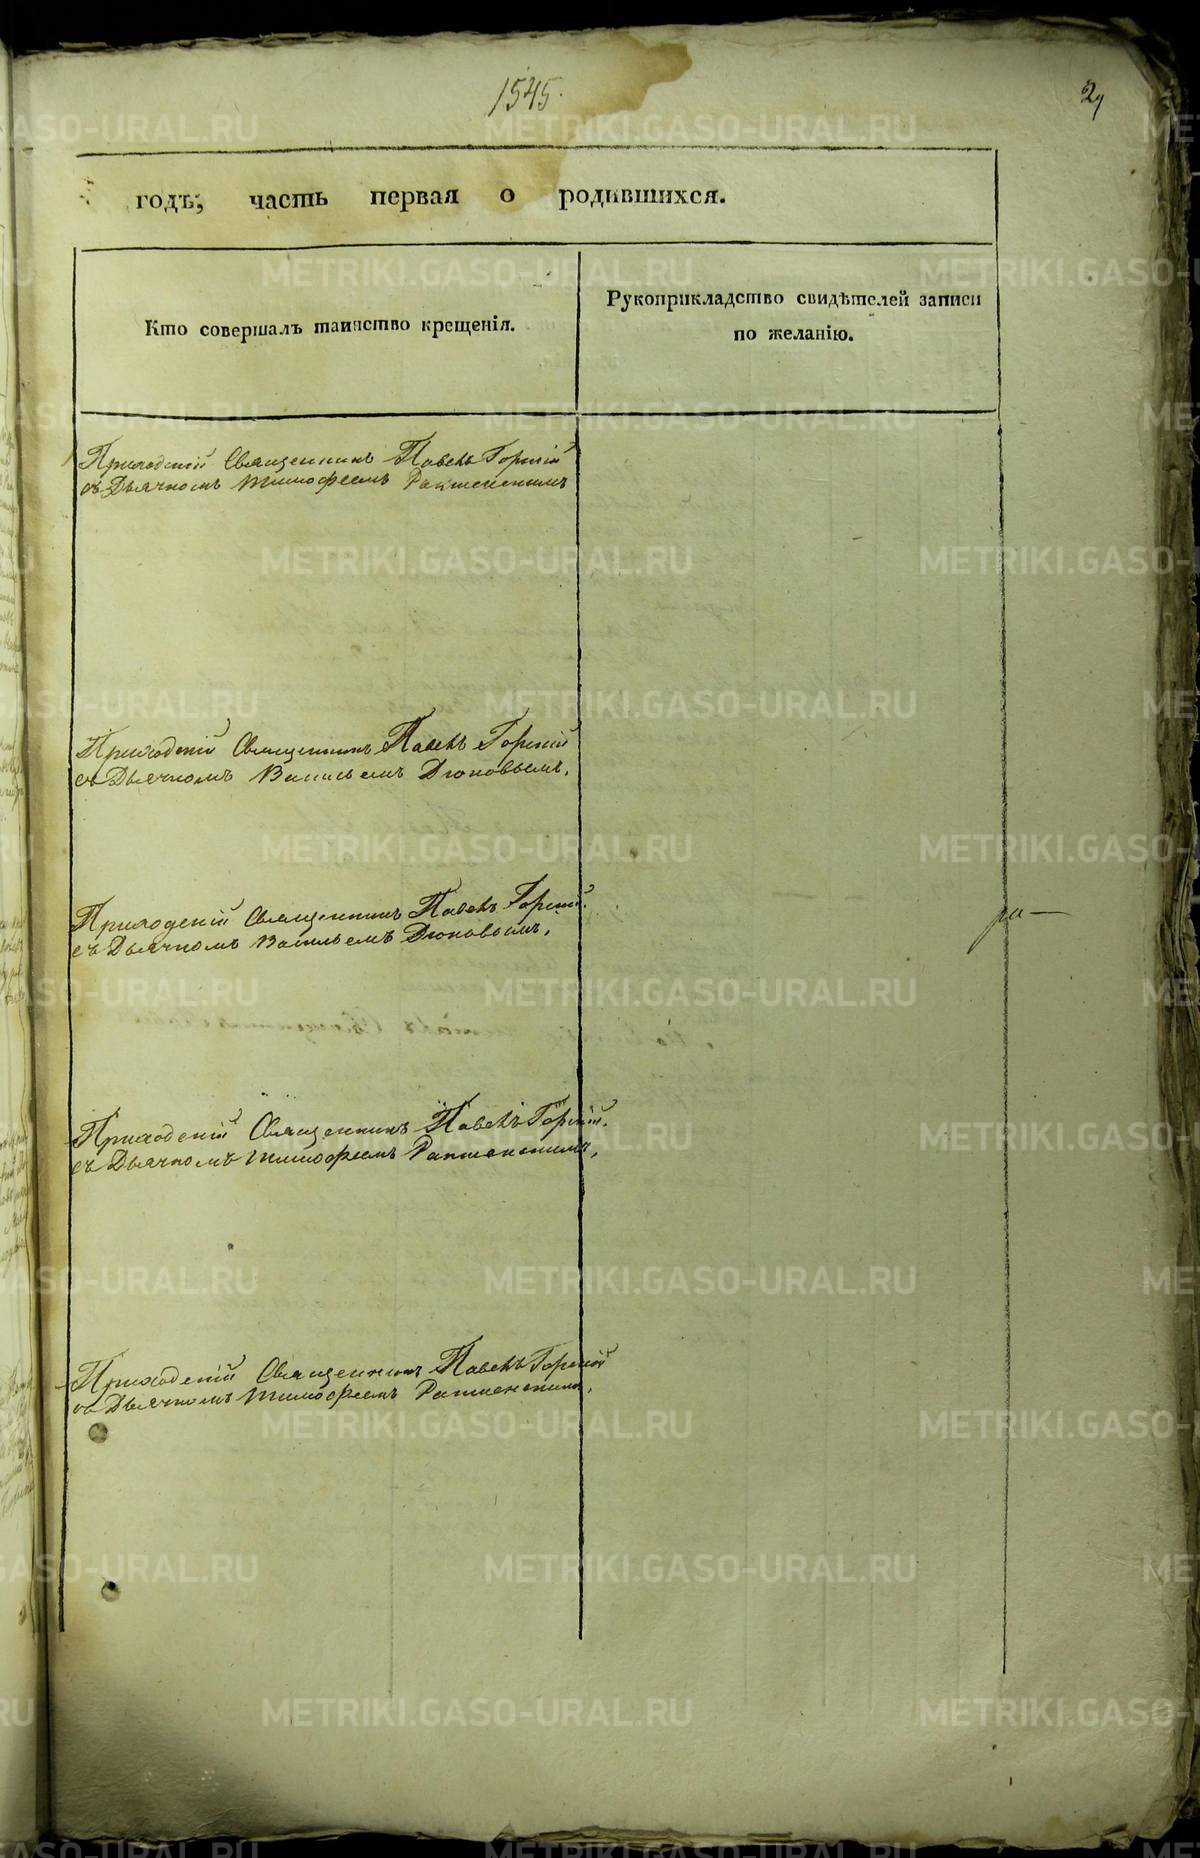 1545.
29
годъ, часть первая о родившихся.
Кто совершалъ таинство крещенія.
Рукоприкладство свидѣтелей записи
по желанію.
Приходскій Священникъ Павелъ Горскій
съ Дьячкомъ Тимофеемъ
Приходскій Священникъ Павелъ Горскій
съ Дьячкомъ Васильемъ
Приходскій Священникъ Павелъ Горскій.
съ Дьячкомъ Васильемъ
ра—
Приходскій Священникъ Павелъ Горскій.
съ Дьячкомъ Тимофеемъ
Приходскій Священникъ Павелъ Горскій
съ Дьячкомъ Тимофеемъ
METRIKI.GASO-URAL.RU